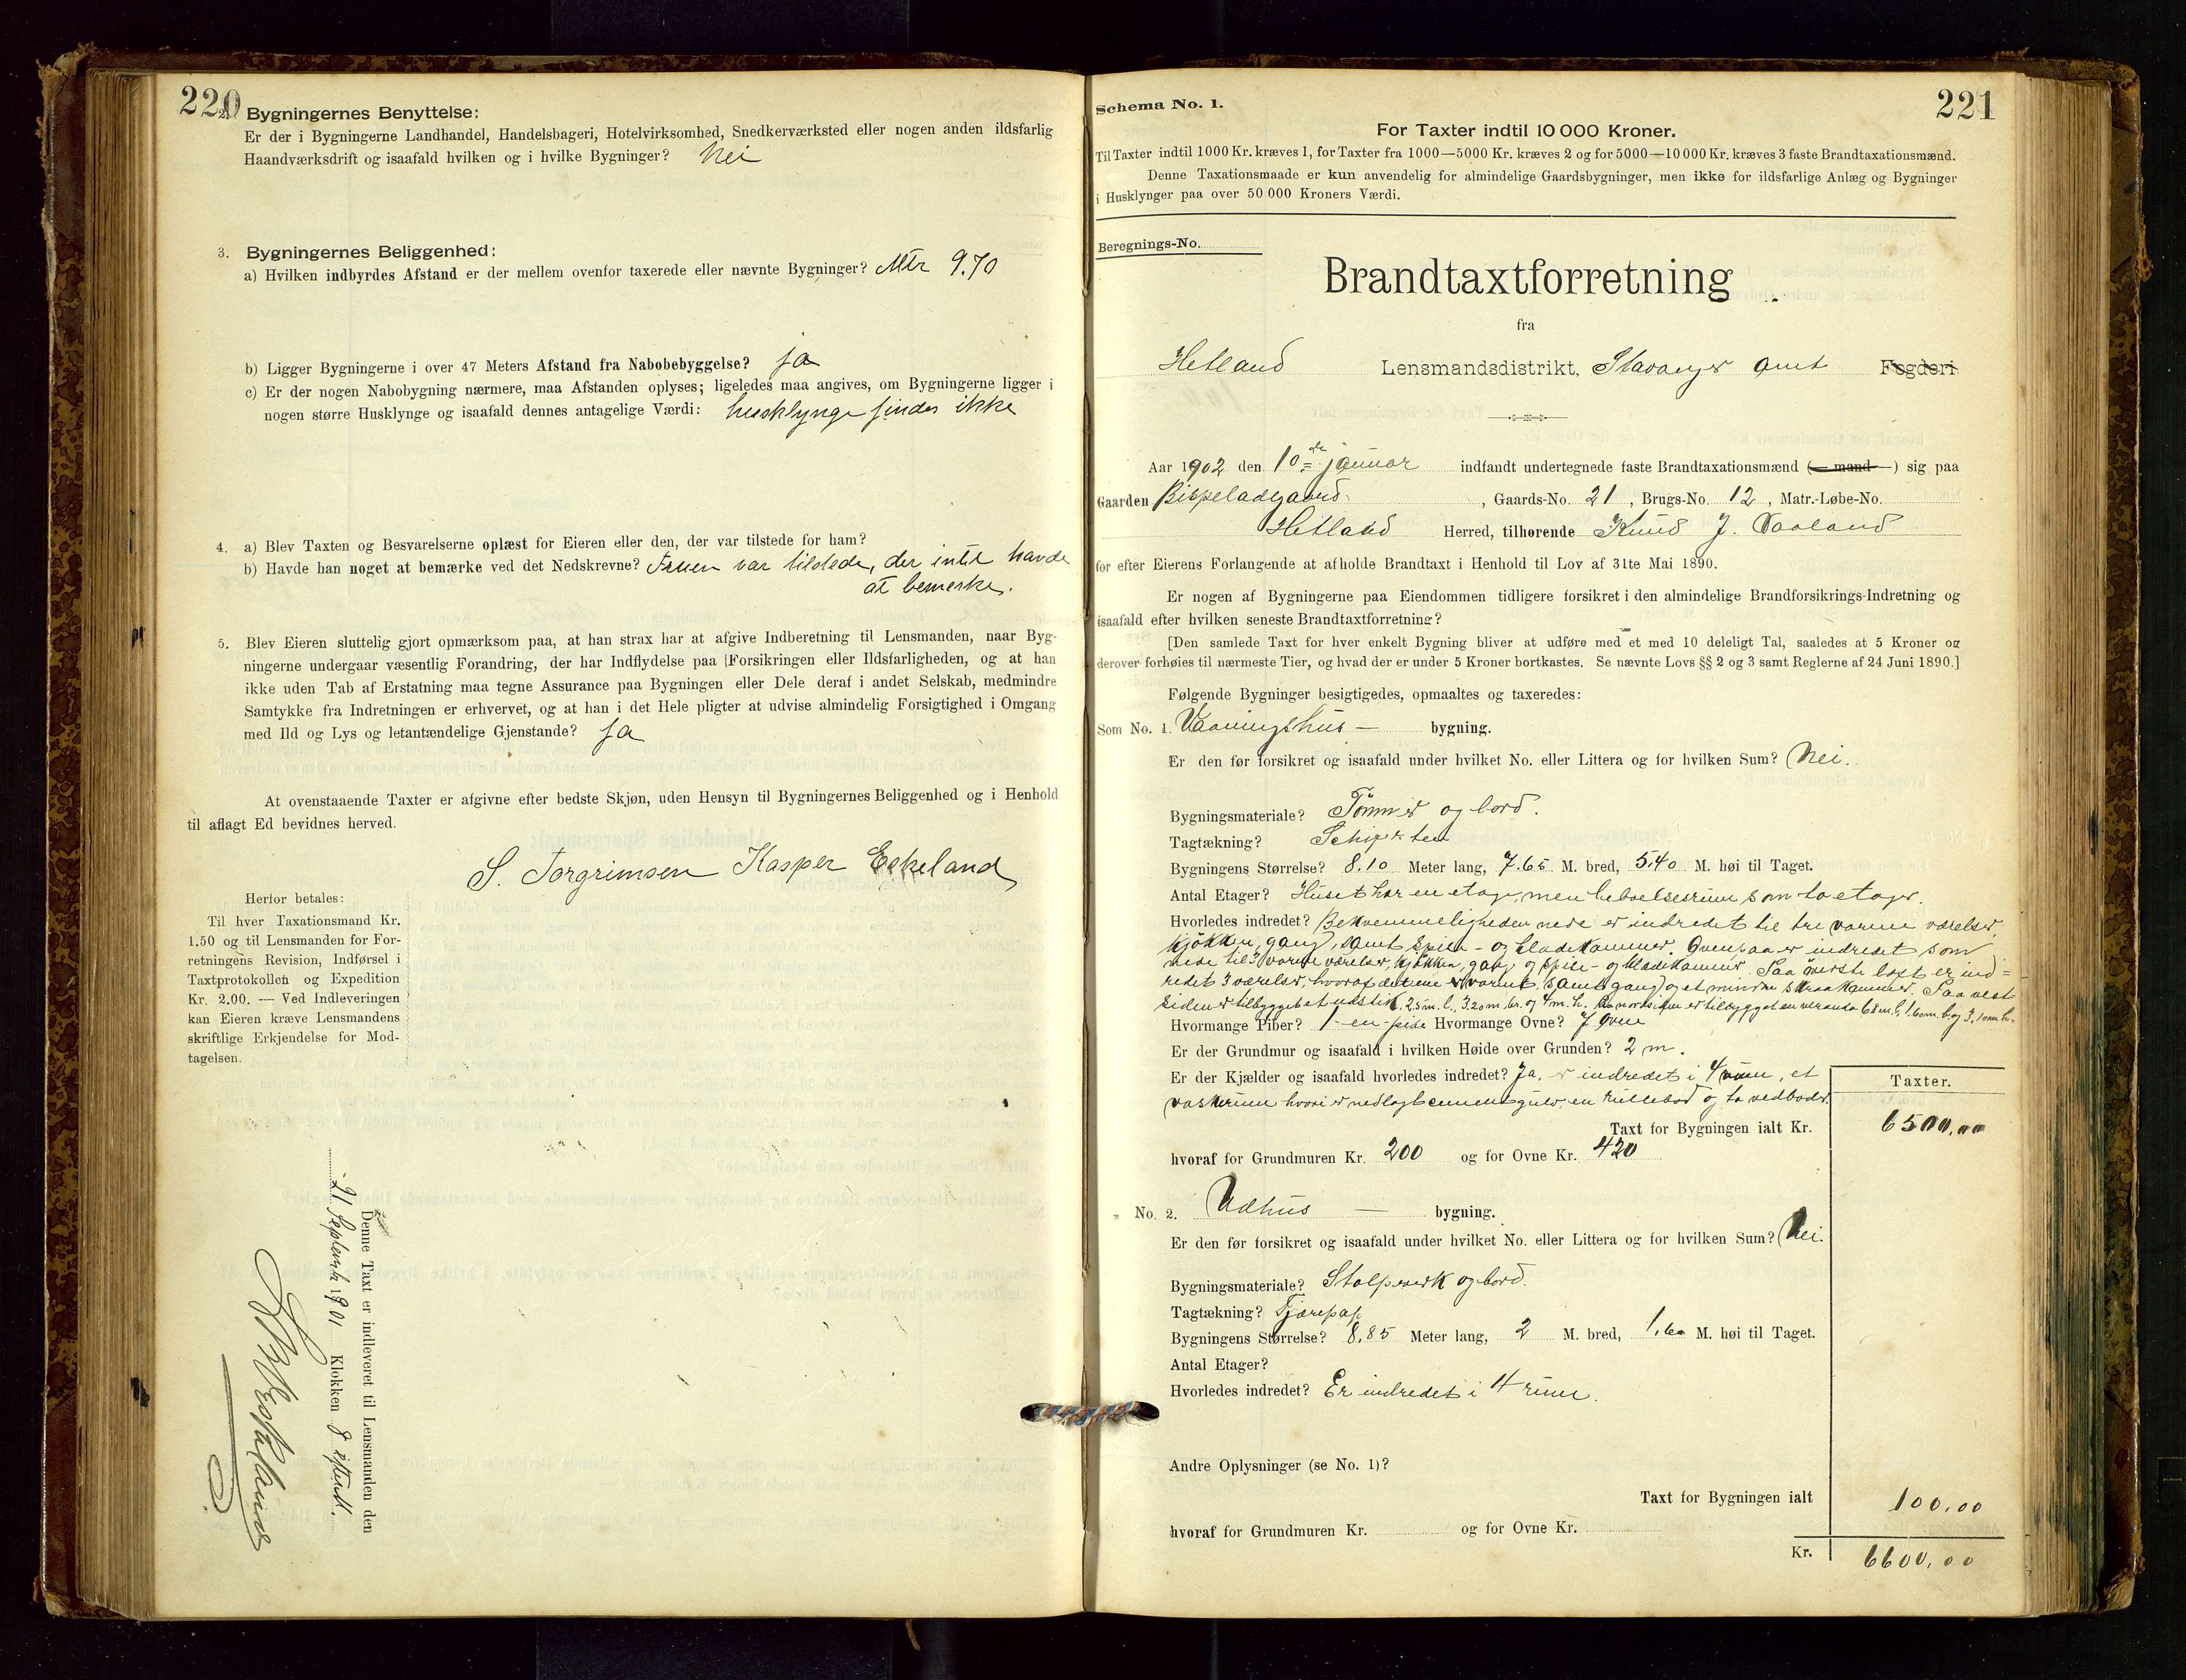 220
2. Bygningernes Benyttelse:
Er der i Bygningerne Landhandel, Handelsbageri, Hotelvirksomhed, Snedkerværksted eller nogen anden ildsfarlig
Haandværksdrift og isaafald hvilken og i hvilke Bygninger? Nei
3. Bygningernes Beliggenhed:
a) Hvilken indbyrdes Afstand er der mellem ovenfor taxerede eller nævnte Bygninger? Mtr 9.70
b) Ligger Bygningerne i over 47 Meters Afstand fra Nabobebyggelse? ja
c) Er der nogen Nabobygning nærmere, maa Afstanden oplyses; ligeledes maa angives, om Bygningerne ligger i
nogen større Husklynge og isaafald dennes antagelige Værdi: husklynge findes ikke
4. a) Blev Taxten og Besvarelserne oplæst for Eieren eller den, der var tilstede for ham?
b) Havde han noget at bemærke ved det Nedskrevne? Fruen var tilstede, der intet havde
at bemerke.
5. Blev Eieren sluttelig gjort opmærksom paa, at han strax har at afgive Indberetning til Lensmanden, naar Byg-
ningerne undergaar væsentlig Forandring, der har Indflydelse paa Forsikringen eller Ildsfarligheden, og at han
ikke uden Tab af Erstatning maa tegne Assurance paa Bygningen eller Dele deraf i andet Selskab, medmindre
Samtykke fra Indretningen er erhvervet, og at han i det Hele pligter at udvise almindelig Forsigtighed i Omgang
med Ild og Lys og letantændelige Gjenstande? ja
At ovenstaaende Taxter er afgivne efter bedste Skjøn, uden Hensyn til Bygningernes Beliggenhed og i Henhold
til aflagt Ed bevidnes herved.
S. Torgrimsen Kasper Eskeland
Herfor betales:
Til hver Taxationsmand Kr.
1.50 og til Lensmanden for For-
retningens Revision, Indførsel i
Taxtprotokollen og Expedition
Kr. 2.00. — Ved Indleveringen
kan Eieren kræve Lensmandens
skriftlige Erkjendelse for Mod-
tagelsen.
Denne Taxt er indleveret til Lensmanden den
21 September 1901 Klokken 8 efterm.
221
Schema No. 1.
For Taxter indtil 10 000 Kroner.
Til Taxter indtil 1000 Kr. kræves 1, for Taxter fra 1000—5000 Kr. kræves 2 og for 5000—10 000 Kr. kræves 3 faste Brandtaxationsmænd.
Denne Taxationsmaade er kun anvendelig for almindelige Gaardsbygninger, men ikke for ildsfarlige Anlæg og Bygninger
i Husklynger paa over 50 000 Kroners Værdi.
Beregnings-No.
Brandtaxtforretning
fra
Hetland Lensmandsdistrikt, Stavanger Amt Fogderi
Aar 1902 den 10de januar indfandt undertegnede faste Brandtaxationsmænd (— mand —) sig paa
Gaarden Bispeladgaard, Gaards-No. 21, Brugs-No. 12, Matr.-Løbe-No.
Hetland Herred, tilhørende Knud J. Vaaland
for efter Eierens Forlangende at afholde Brandtaxt i Henhold til Lov af 31te Mai 1890.
Er nogen af Bygningerne paa Eiendommen tidligere forsikret i den almindelige Brandforsikrings-Indretning og
isaafald efter hvilken seneste Brandtaxtforretning?
[Den samlede Taxt for hver enkelt Bygning bliver at udføre med et med 10 deleligt Tal, saaledes at 5 Kroner og
derover forhøies til nærmeste Tier, og hvad der er under 5 Kroner bortkastes. Se nævnte Lovs §§ 2 og 3 samt Reglerne af 24 Juni 1890.]
Følgende Bygninger besigtigedes, opmaaltes og taxeredes:
Som No. 1. Vaaningshus — bygning.
Er den før forsikret og isaafald under hvilket No. eller Littera og for hvilken Sum? Nei.
Bygningsmateriale? Tømmer og bord.
Tagtækning?
Bygningens Størrelse? 8.10 Meter lang, 7.65 M. bred, 5.40 M. høi til Taget.
Antal Etager? Huset har en etage, men beboelsesrum som to etager.
Hvorledes indredet? Bekvemmeligheden nede er indredet til tre varme værelser,
kjøkken, gang, samt spise- og kladekammer. Ovenpaa er indredet som
nede til 3 varme værelser, kjøkken, gang og spise- og kladekammer. Paa øverste loft er ind=
redet 3 værelser, hvoraf det ene er varmt, samt gang og et mindre skraakammer. Paa vest
siden er tilbygget et udstik. 2.5 m. l., 3.20 m. br. og 4 m. h. Paa nordsiden er tilbygget en veranda 6.8 m. l., 1.60 m. b. og 3.10 m. h.
Hvormange Piber? 1 - en - pibe Hvormange Ovne? 7 ovne
Er der Grundmur og isaafald i hvilken Høide over Grunden? 2 m.
Er der Kjælder og isaafald hvorledes indredet? Ja, er indredet i 4 rum, et
vaskerum hvori er nedlagt cementgulv, en rullebod og to vedboder.
Taxter.
Taxt for Bygningen ialt Kr. 6500,00
hvoraf for Grundmuren Kr. 200 og for Ovne Kr. 420
" No. 2. Udhus — bygning.
Er den før forsikret og isaafald under hvilket No. eller Littera og for hvilken Sum? Nei.
Bygningsmateriale? Stolpeverk og bord.
Tagtækning? Tjærepap
Bygningens Størrelse? 8.85 Meter lang, 2 M. bred, 1.60 M. høi til Taget.
Antal Etager?
Hvorledes indredet? Er indredet i 4 rum.
Andre Oplysninger (se No. 1)?
Taxt for Bygningen ialt 100,00
hvoraf for Grundmuren Kr. og for Ovne Kr.
Kr. 6600,00